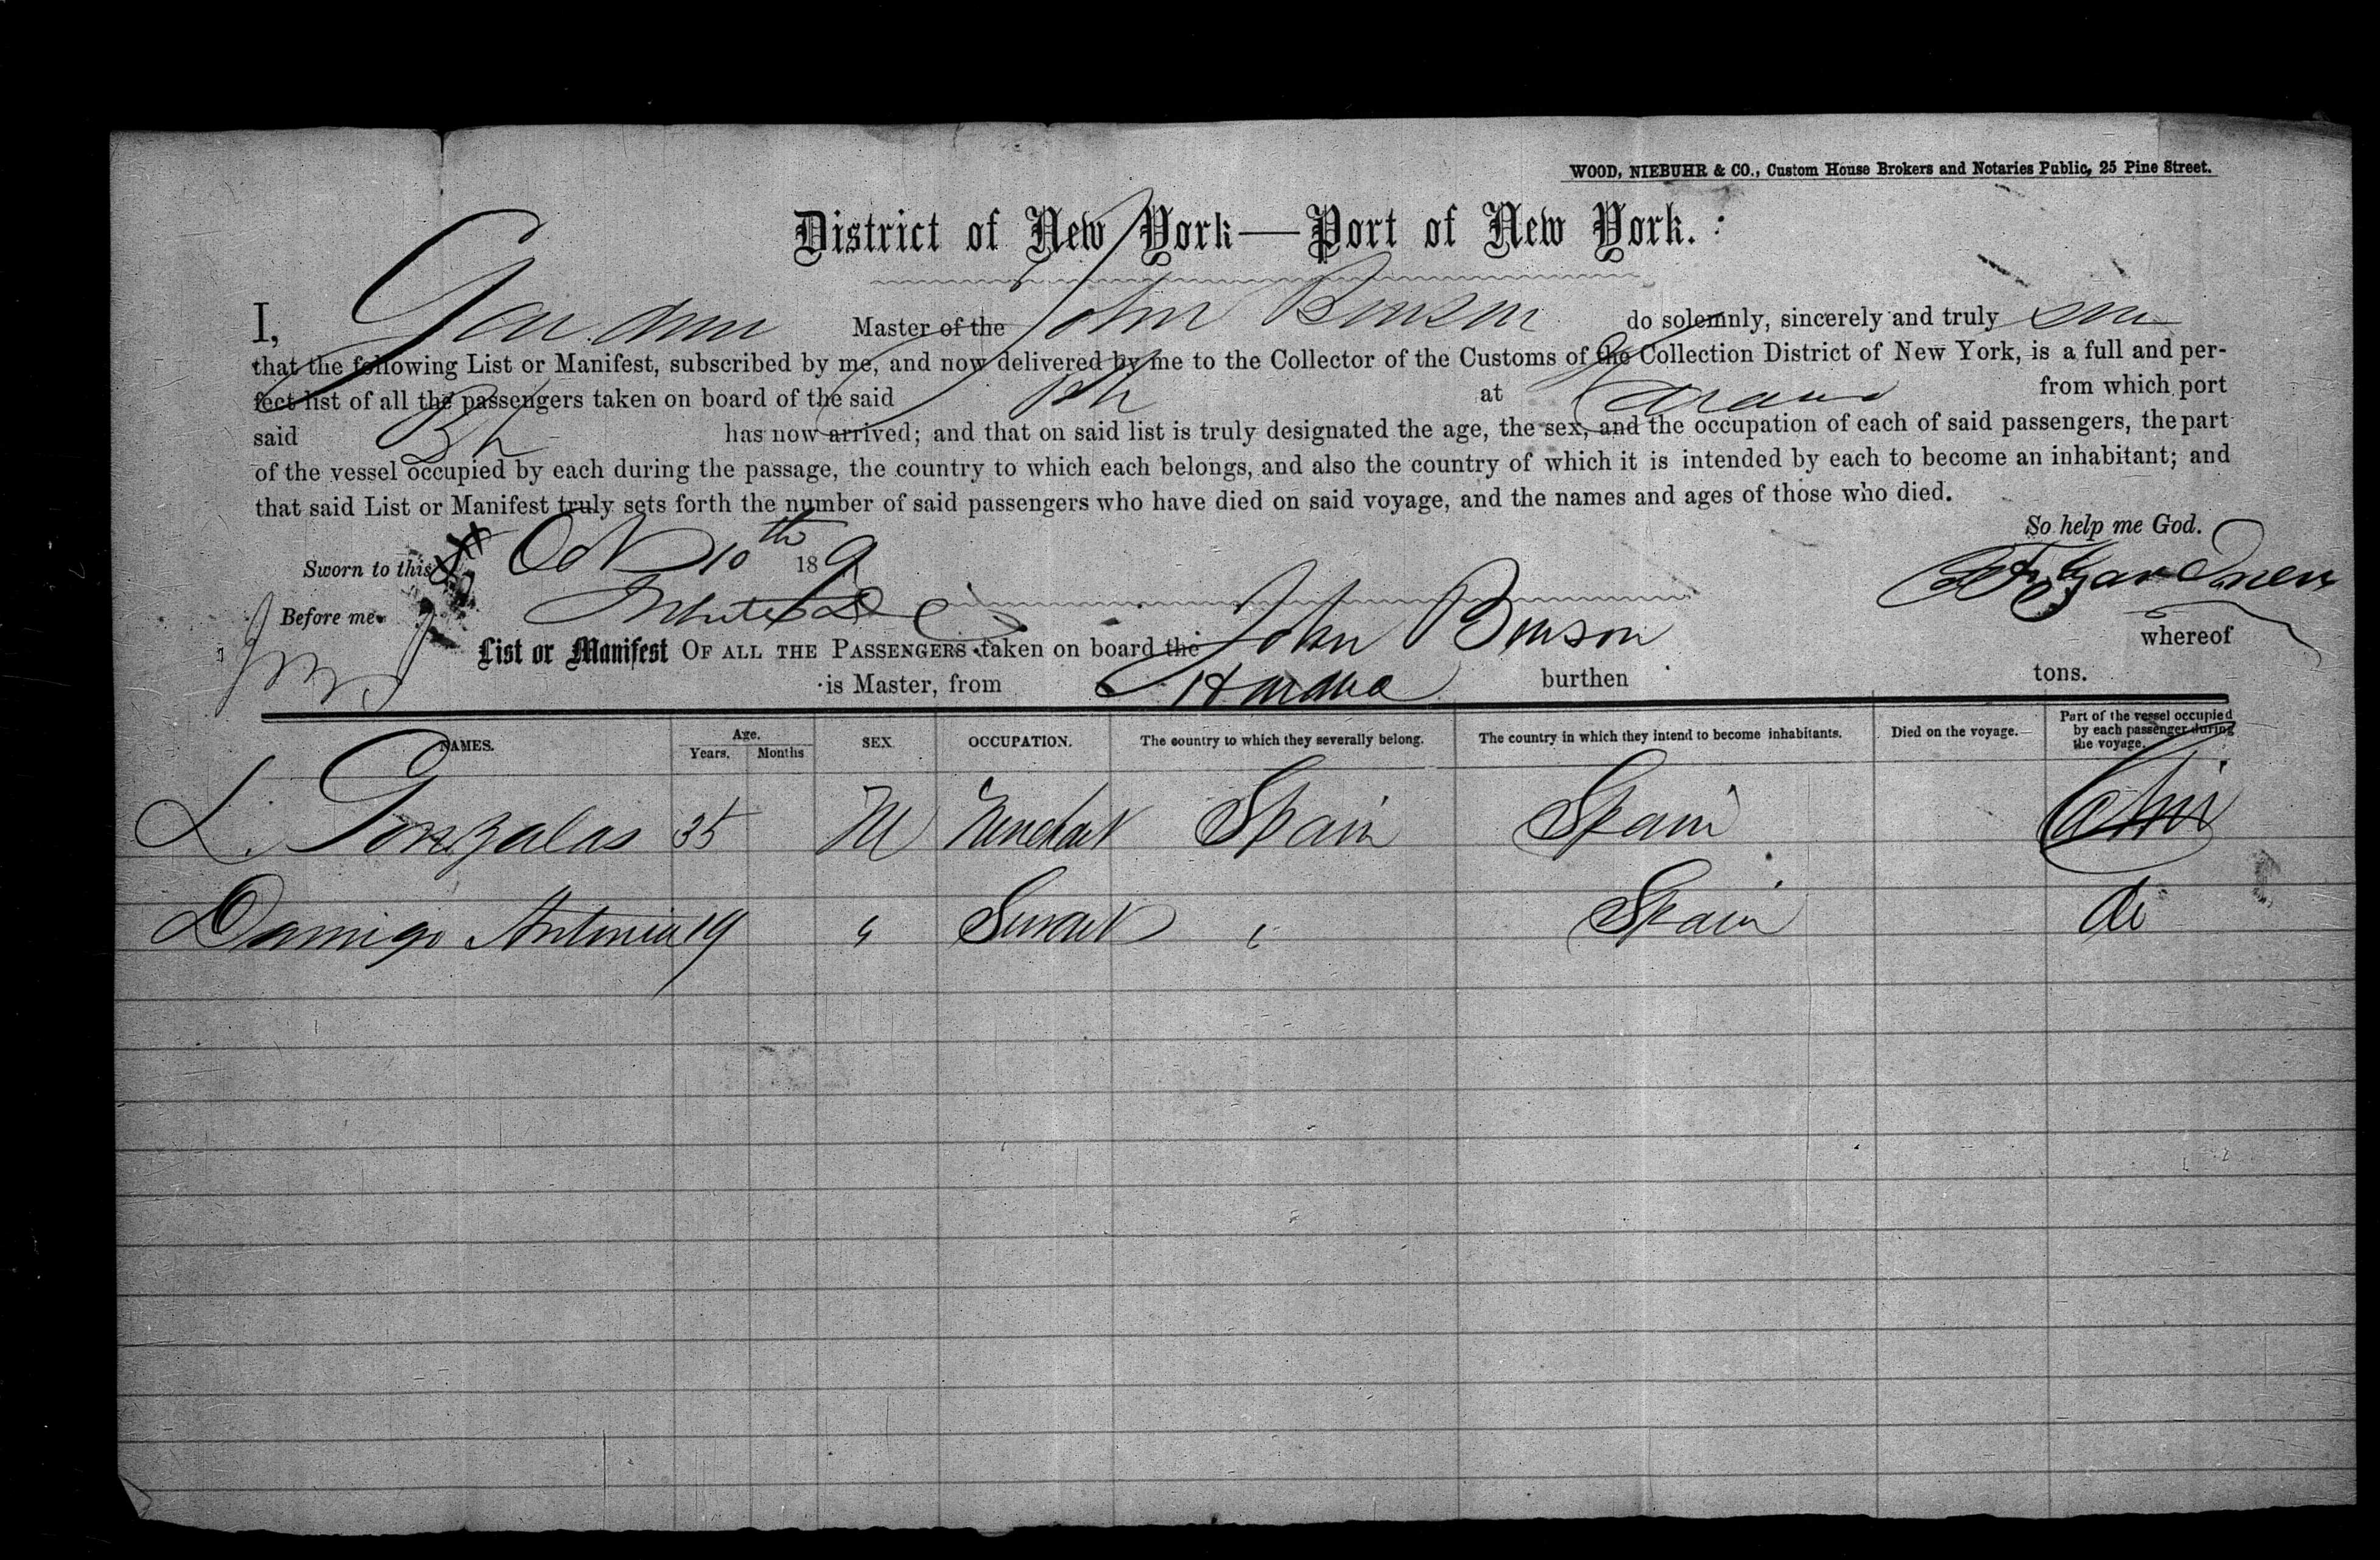 WOOD, NIEBUHR & CO., Custom House Brokers and Notaries Public, 25 Pine Street.
District of New York—Port of New York.
I, Gardner Master of the John Benson do solemnly, sincerely and truly
that the following List or Manifest, subscribed by me, and now delivered by me to the Collector of the Customs of the Collection District of New York, is a full and per-
fect list of all the passengers taken on board of the said at from which port
said has now arrived; and that on said list is truly designated the age, the sex, and the occupation of each of said passengers, the part
of the vessel occupied by each during the passage, the country to which each belongs, and also the country of which it is intended by each to become an inhabitant; and
that said List or Manifest truly sets forth the number of said passengers who have died on said voyage, and the names and ages of those who died.
So help me God.
Sworn to this Oct 10th 189
Gardner
Before me
List or Manifest OF ALL THE PASSENGERS taken on board the John Benson whereof
is Master, from burthen tons.
NAMES. Age. Years. Months SEX. OCCUPATION. The country to which they severally belong. The country in which they intend to become inhabitants. Died on the voyage. Part of the vessel occupied by each passenger during the voyage.
L. Gonzalas 35 M Spain Spain
Damigo Antonio 19 " " Spain do